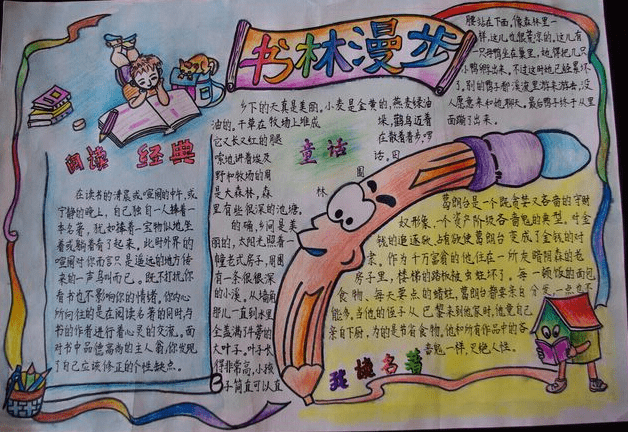 书林漫步
阅读经典
在读书的清晨或喧闹的中午,或
宁静的晚上,自己独自一人捧着一
本名著,犹如捧着一宝物似地,坐
着或躺着看了起来,此时外界的
喧闹对你而言只是遥远的地方传
来的一声鸟叫而已。既不打扰你
看书也不影响你的情绪,你内心
所向往的是在阅读名著的同时,与
书的作者进行着心灵的交流。面
对书中品德高尚的主人翁,你发现
了自己应该修正的个性缺点。
童话
乡下的天真是美丽。小麦是金黄的,燕麦绿油
油的。干草在牧场上堆成垛,鹳鸟迈着
它又长又红的腿在散着步,啰
嗦地讲着埃及话。田
野和牧场的周围
是大森林,森林
里有些很深的池塘。
的确,乡间是美
丽的,太阳光照着一
幢老式房子,周围
有一条很很深
的小溪。从墙角
那儿一直到水里
全盖满牛蒡的
大叶子。叶子长
得非常高,小孩
子简直可以直
腰站在下面。像森林里一
样,这儿也很荒凉的。这儿有
一只母鸭坐在巢里,她得把几只
小鸭孵出来。不过这时她已经累坏
了。别的鸭子都溪流里游来游去,没
人愿意来和她聊天。最后鸭子终于从里
面蹦了出来。
我读名著
葛朗台是一个既贪婪又吝啬的守财
奴形象,一个资产阶级吝啬鬼的典型。对金
钱的追逐欲,占有欲使葛朗台变成了金钱的对
象,作为千万富翁的他,住在一所灰暗阴森的老
房子里,楼梯的踏板被虫蛀坏了。每一顿饭的面包
食物,每天要点的蜡烛,葛朗台都要亲自分发一点也不
能多,当他的侄子从巴黎来到他家时,他竟自己
亲自下厨,为的是节省食物,他和所有作品中的吝
啬鬼一样,灭绝人性。